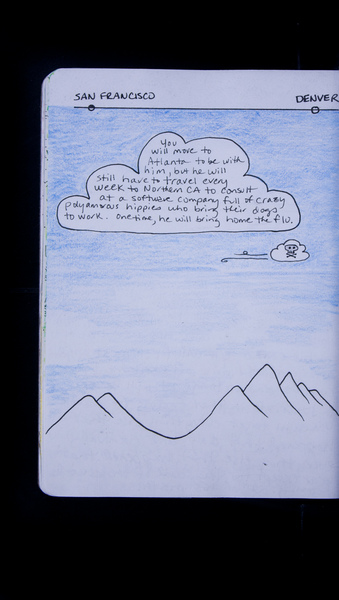 SAN FRANCISCO
DENVER
You
will move to
Atlanta to be with
him, but he will
still have to travel every
week to Northern CA to consult
at a software company full of crazy
polyamorous hippies who bring their dogs
to work. One time, he will bring home the flu.